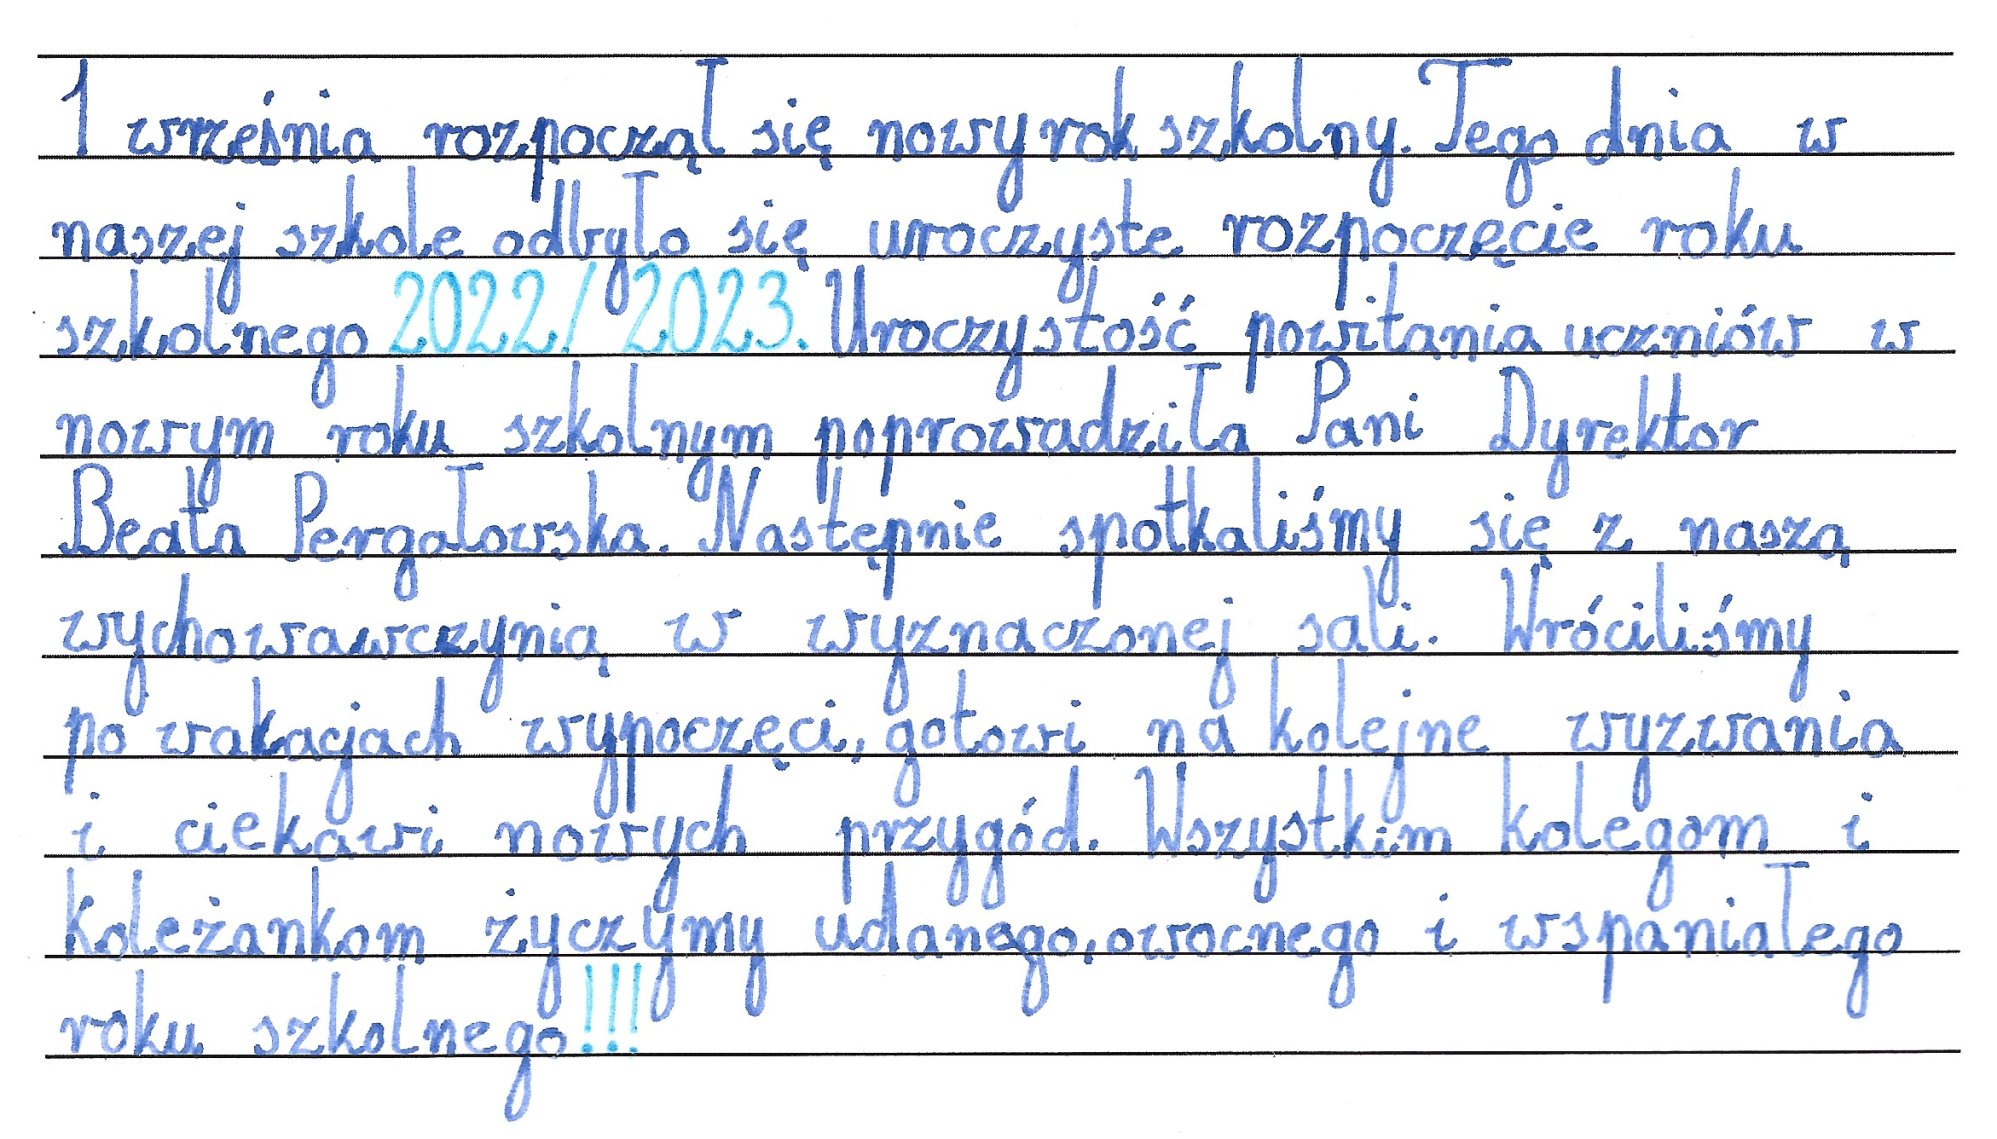 1 września rozpoczął się nowy rok szkolny. Tego dnia w
naszej szkole odbyło się uroczyste rozpoczęcie roku
szkolnego 2022/2023. Uroczystość powitania uczniów w
nowym roku szkolnym poprowadziła Pani Dyrektor
Beata Pergałowska. Następnie spotkaliśmy się z naszą
wychowawczynią w wyznaczonej sali. Wróciliśmy
po wakacjach wypoczęci, gotowi na kolejne wyzwania
i ciekawi nowych przygód. Wszystkim kolegom i
koleżankom życzymy udanego, owocnego i wspaniałego
roku szkolnego!!!